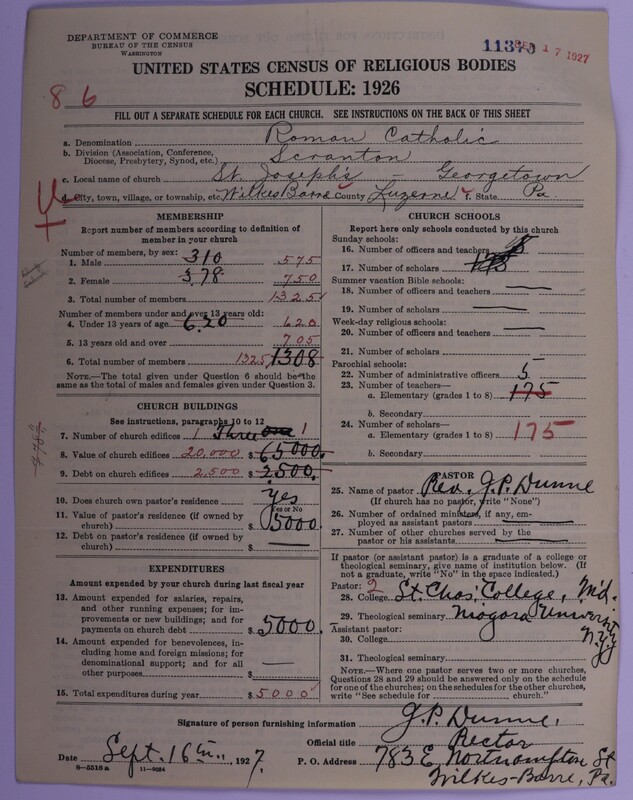 DEPARTMENT OF COMMERCE
BUREAU OF THE CENSUS
WASHINGTON
11375 17 1927
UNITED STATES CENSUS OF RELIGIOUS BODIES
SCHEDULE: 1926
8 6
FILL OUT A SEPARATE SCHEDULE FOR EACH CHURCH. SEE INSTRUCTIONS ON THE BACK OF THIS SHEET
a. Denomination Roman Catholic
b. Division (Association, Conference, Diocese, Presbytery, Synod, etc.) Scranton
c. Local name of church St. Joseph's - Georgetown
d. City, town, village, or township, etc. Wilkes Barre County Luzerne f. State Pa
MEMBERSHIP
Report number of members according to definition of
member in your church
Number of members, by sex:
1. Male 310 575
2. Female 378 750
3. Total number of members 1325
Number of members under and over 13 years old:
4. Under 13 years of age 620 620
5. 13 years old and over 705
6. Total number of members 1325 1308
NOTE.—The total given under Question 6 should be the
same as the total of males and females given under Question 3.
CHURCH BUILDINGS
See instructions, paragraphs 10 to 12
7. Number of church edifices 1 Three one 1
8. Value of church edifices 20,000 $65000.
9. Debt on church edifices 2,500 $2500.
10. Does church own pastor's residence yes
Yes or No
11. Value of pastor's residence (if owned by
church) $5000
12. Debt on pastor's residence (if owned by
church) $
EXPENDITURES
Amount expended by your church during last fiscal year
13. Amount expended for salaries, repairs,
and other running expenses; for im-
provements or new buildings; and for
payments on church debt $5000.
14. Amount expended for benevolences,
including home and foreign missions; for
denominational support; and for all
other purposes $
15. Total expenditures during year $5000
CHURCH SCHOOLS
Report here only schools conducted by this church
Sunday schools:
16. Number of officers and teachers 5
17. Number of scholars 175
Summer vacation Bible schools:
18. Number of officers and teachers
19. Number of scholars
Week-day religious schools:
20. Number of officers and teachers
21. Number of scholars
Parochial schools:
22. Number of administrative officers 5
23. Number of teachers—
a. Elementary (grades 1 to 8) 175
b. Secondary
24. Number of scholars—
a. Elementary (grades 1 to 8) 175
b. Secondary
PASTOR
25. Name of pastor Rev. J.P. Dunne
(If church has no pastor, write "None")
26. Number of ordained ministers, if any, em-
ployed as assistant pastors
27. Number of other churches served by the
pastor or his assistants
If pastor (or assistant pastor) is a graduate of a college or
theological seminary, give name of institution below. (If
not a graduate, write "No" in the space indicated.)
Pastor: 2
28. College St. Chas. College, Md.
29. Theological seminary Niagara University N.Y.
Assistant pastor:
30. College
31. Theological seminary
NOTE.—Where one pastor serves two or more churches,
Questions 28 and 29 should be answered only on the schedule
for one of the churches; on the schedules for the other churches,
write "See schedule for church."
Signature of person furnishing information J.P. Dunne,
Official title Rector
Date Sept. 16th, 1927, P. O. Address 783 E. Northampton St
Wilkes-Barre, Pa.
8—5518a 11—9084